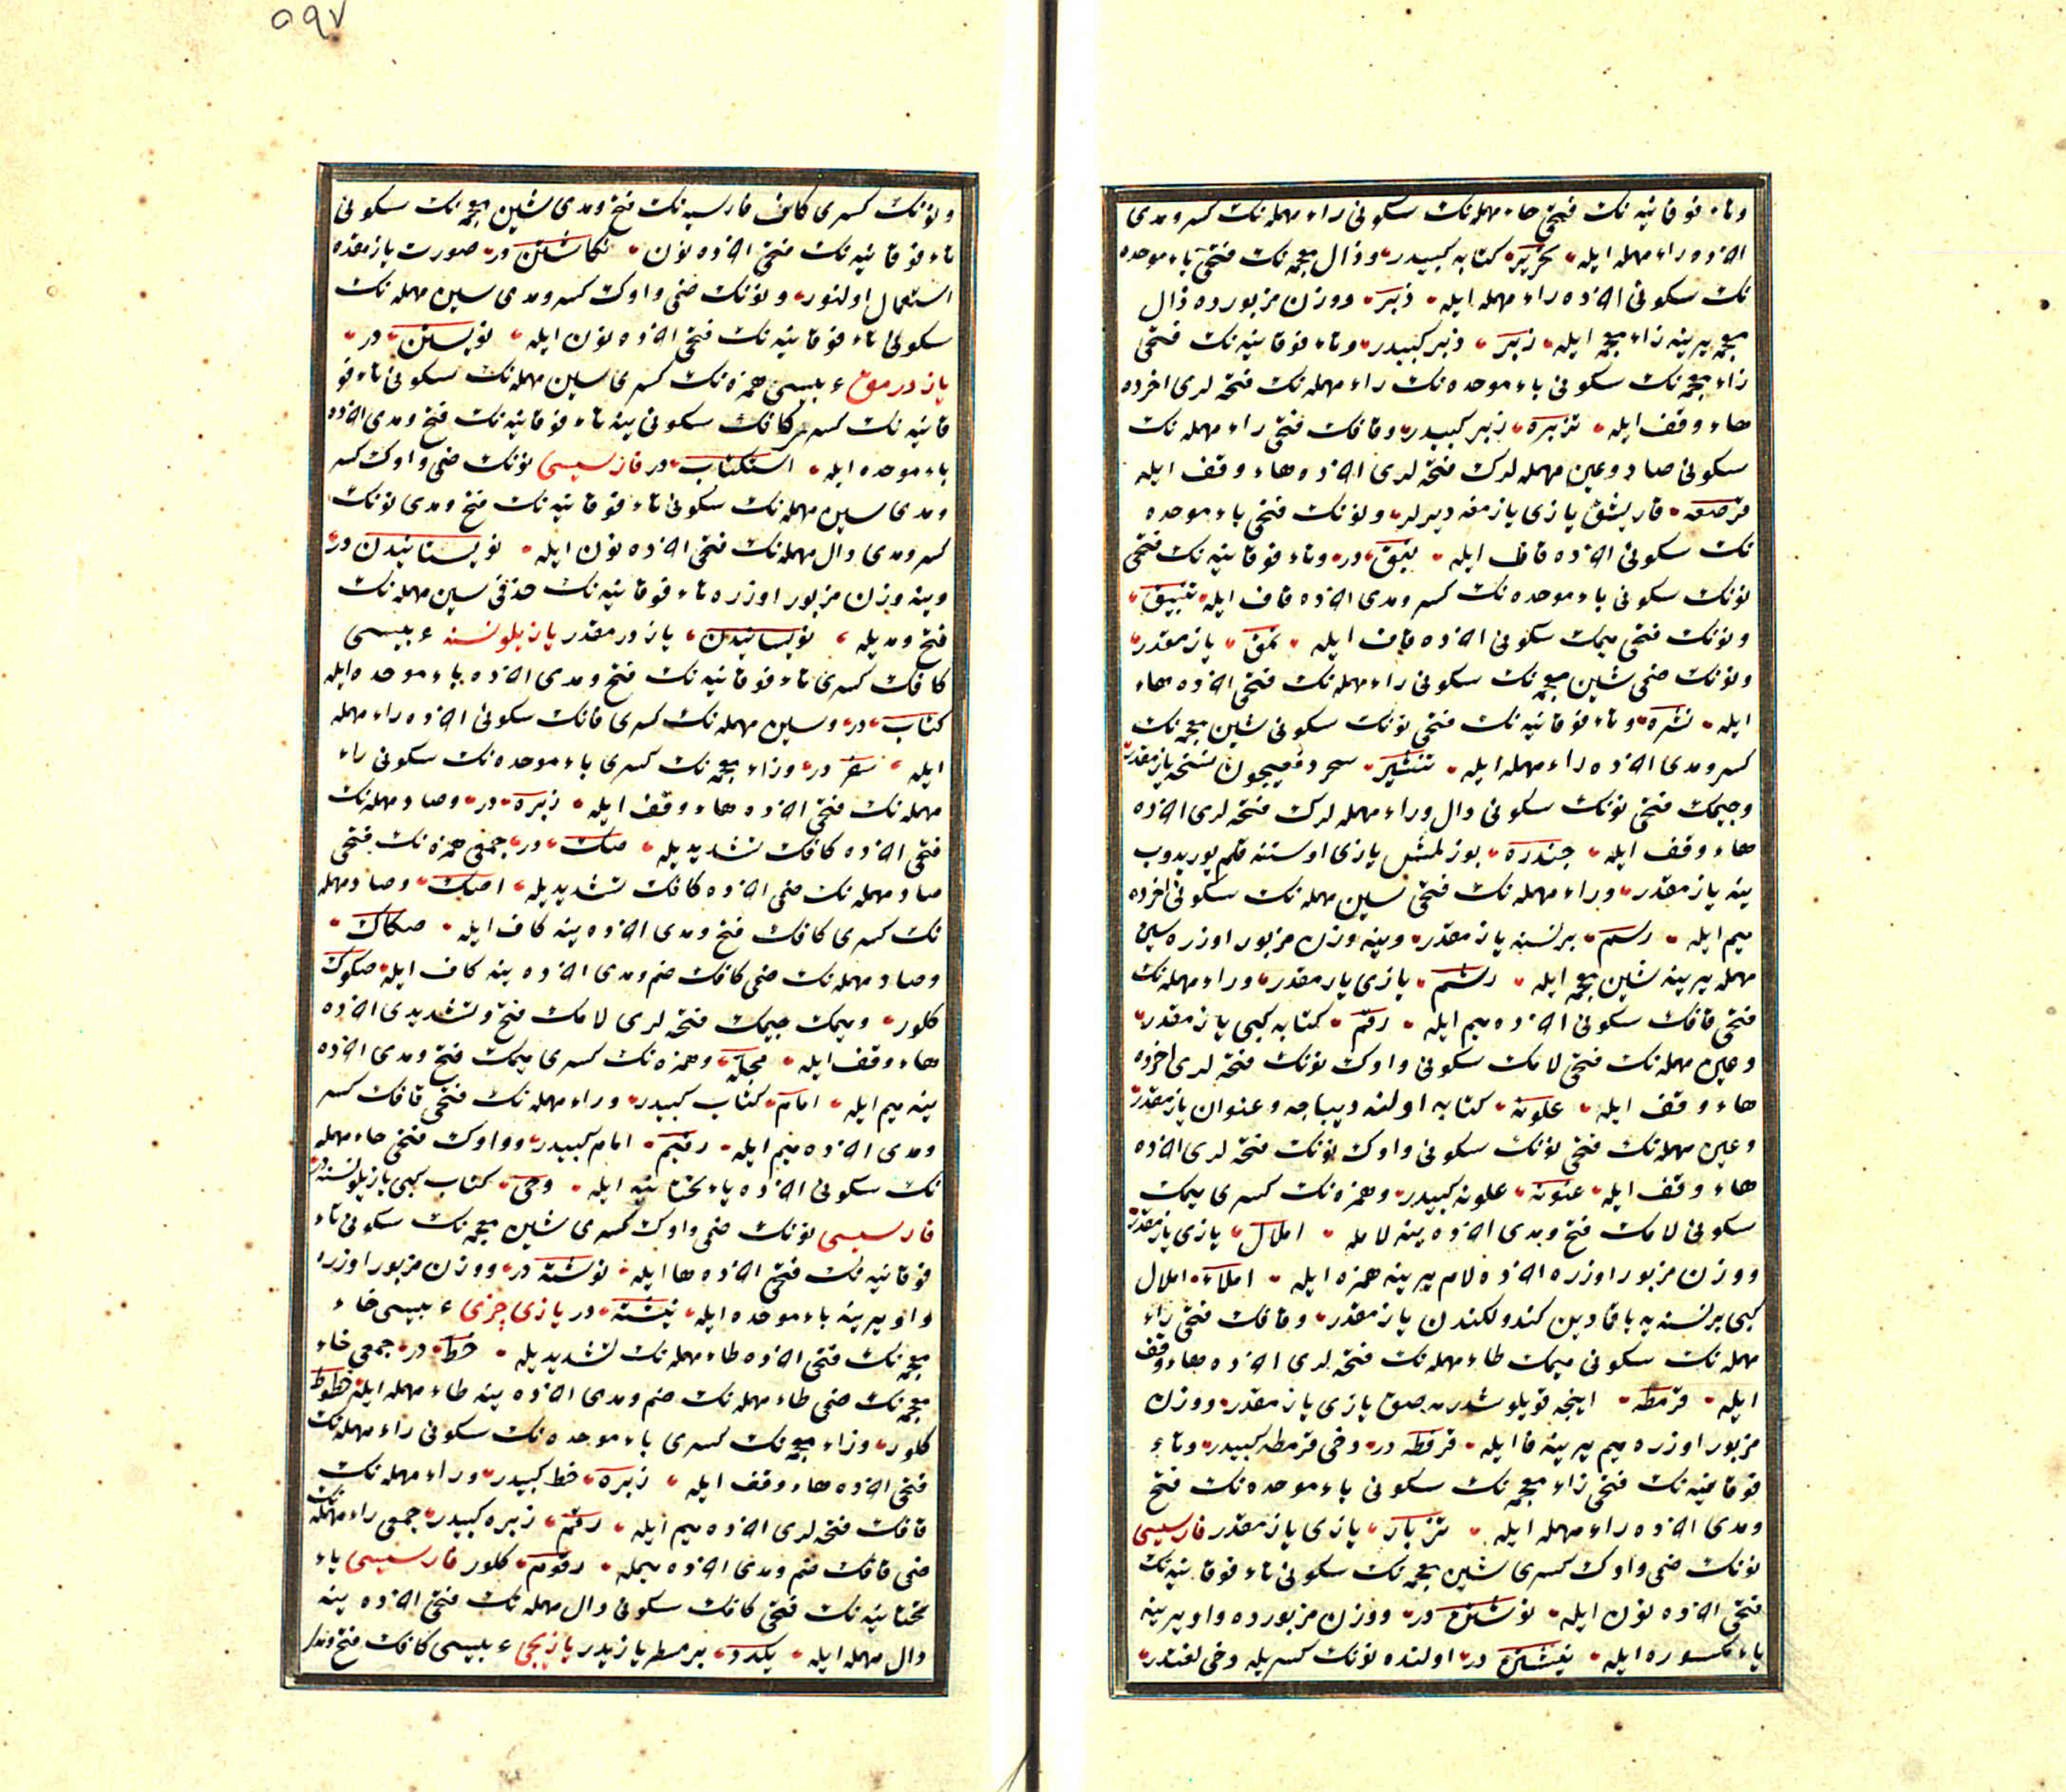 وتاء فوقانیه نك فتحی حاء مهمله نك سكونی راء مهمله نك كسر ومدی
اخرده راء مهمله ایله تحریر كتابه كبیدر وذال معجمه نك فتحی باء موحده
نك سكونی اخرده راء مهمله ایله ذبر ووزن مزبورده ذال
معجمه یرینه زاء معجمه ایله زبر ذبر كبیدر وتاء فوقانیه نك فتحی
زاء معجمه نك سكونی باء موحده نك راء مهمله نك فتحه لری اخرده
هاء وقف ایله تزبره زبر كبیدر وقافك فتحی راء مهمله نك
سكونی صاد وعین مهمله لرك فتحه لری اخرده هاء وقف ایله
قرصعه قاریشق یازی یازمغه دیرلر ونونك فتحی باء موحده
نك سكونی اخرده قاف ایله نبق در وتاء فوقانیه نك فتحی
نونك سكونی باء موحده نك كسر ومدی اخرده قاف ایله تنبیق
ونونك فتحی میمك سكونی اخرده قاف ایله نمق یازمقدر
ونونك ضمی شین معجمه نك سكونی راء مهمله نك فتحی اخرده هاء
ایله نشره وتاء فوقانیه نك فتحی نونك سكونی شین معجمه نك
كسر ومدی اخرده راء مهمله ایله تنشیر سحر دفعیچون نسخه یازمقدر
وجیمك فتحی نونك سكونی دال وراء مهمله لرك فتحه لری اخرده
هاء وقف ایله جندره بوزلمش یازی اوستنه قلم یوریدوب
ینه یازمقدر وراء مهمله نك فتحی سین مهمله نك سكونی اخرده
میم ایله رسم برنسنه یازمقدر وینه وزن مزبور اوزره سین
مهمله یرینه شین معجمه ایله رشم یازی یازمقدر وراء مهمله نك
فتحی قافك سكونی اخرده میم ایله رقم كتابه كبی یازمقدر
وعین مهمله نك فتحی لامك سكونی واوك نونك فتحه لری اخرده
هاء وقف ایله علونه كتابه اولنه دیباجه وعنوان یازمقدر
وعین مهمله نك فتحی نونك سكونی واوك نونك فتحه لری اخرده
هاء وقف ایله عنونه علونه كبیدر وهمزه نك كسری میمك
سكونی لامك فتح ومدی اخرده ینه لامله املال یازی یازمقدر
ووزن مزبور اوزره اخرده لام یرینه همزه ایله املاء املال
كبی برنسنه یه باقمادین كندولكندن یازمقدر وقافك فتحی راء
مهمله نك سكونی میمك طاء مهمله نك فتحه لری اخرده هاء وقف
ایله قرمطه اینجه قویلو شدرمه صق یازی یازمقدر ووزن
مزبور اوزره میم یرینه فا ایله قرفطه در دخی قرمطه كبیدر وتاء
فوقانیه نك فتحی زاء معجمه نك سكونی باء موحده نك فتح
ومدی اخرده راء مهمله ایله تزبار یازی یازمقدر فارسیسی
نونك ضمی واوك كسری شین معجمه نك سكونی تاء فوقانیه نك
فتحی اخرده نون ایله نوشتن در ووزن مزبورده واو یرینه
باء مكسوره ایله نبشتن در اولنده نونك كسریله دخی لغتدر
ونونك كسری كاف فارسیه نك فتح ومدی شین معجمه نك سكونی
تاء فوقانیه نك فتحی اخرده نون نكاشتن در صورت یازمقده
استعمال اولنور ونونك ضمی واوك كسر ومدی سین مهمله نك
سكونی تاء فوقانیه نك فتحی اخرده نون ایله نویستن در
یازدرمق عربیسی همزه نك كسری سین مهمله نك سكونی تاء فو
قانیه نك كسر كافك سكونی ینه تاء فوقانیه نك فتح ومدی اخرده
باء موحده ایله استكتاب در فارسیسی نونك ضمی واوك كسر
ومدی سین مهمله نك سكونی تاء فوقانیه نك فتح ومدی نونك
كسر ومدی دال مهمله نك فتحی اخرده نون ایله نویستانیدن در
وینه وزن مزبور اوزره تاء فوقانیه نك حذفی سین مهمله نك
فتح ومدیله نویسانیدن یازدرمقدر یازیلو نسنه عربیسی
كافك كسری تاء فوقانیه نك فتح ومدی اخرده باء موحده ایله
كتاب در وسین مهمله نك كسری فانك سكونی اخرده راء مهمله
ایله سفر در وزاء معجمه نك كسری باء موحده نك سكونی راء
مهمله نك فتحی اخرده هاء وقف ایله زبره در وصاد مهمله نك
فتحی اخرده كافك تشدیدیله صك در جمعی همزه نك فتحی
صاد مهمله نك ضمی اخرده كافك تشدیدیله اصك وصاد مهمله
نك كسری كافك فتح ومدی اخرده ینه كاف ایله صكاك
وصاد مهمله نك ضمی كافك ضم ومدی اخرده ینه كاف ایله صكوك
كلور ومیمك جیمك فتحه لری لامك فتح وتشدیدی اخرده
هاء وقف ایله مجله وهمزه نك كسری میمك فتح ومدی اخرده
ینه میم ایله امام كتاب كبیدر وراء مهمله نك فتحی قافك كسر
ومدی اخرده میم ایله رقیم امام كبیدر وواوك فتحی حاء مهمله
نك سكونی اخرده یاء تحتانیه ایله وحی كتاب كبی یازیلو نسنه در
فارسیسی نونك ضمی واوك كسری شین معجمه نك سكونی تاء
فوقانیه نك فتحی اخرده ها ایله نوشته در ووزن مزبور اوزره
واو یرینه باء موحده ایله نبشته در یازی چزی عربیسی خاء
معجمه نك فتحی اخرده طاء مهمله نك تشدیدیله خط در جمعی خاء
معجمه نك ضمی طاء مهمله نك ضم ومدی اخرده ینه طاء مهمله ایله خطوط
كلور وزاء معجمه نك كسری باء موحده نك سكونی راء مهمله نك
فتحی اخرده هاء وقف ایله زبره خط كبیدر وراء مهمله نك
قافك فتحه لری اخرده میم ایله رقم زبره كبیدر جمعی راء مهمله نك
ضمی قافك ضم ومدی اخرده میمله رقوم كلور فارسیسی یاء
تحتانیه نك فتحی كافك سكونی دال مهمله نك فتحی اخرده ینه
دال مهمله ایله یكدد بر سطر یازیدر یازیجی عربیسی كافك فتح ومدی
٥٩٧